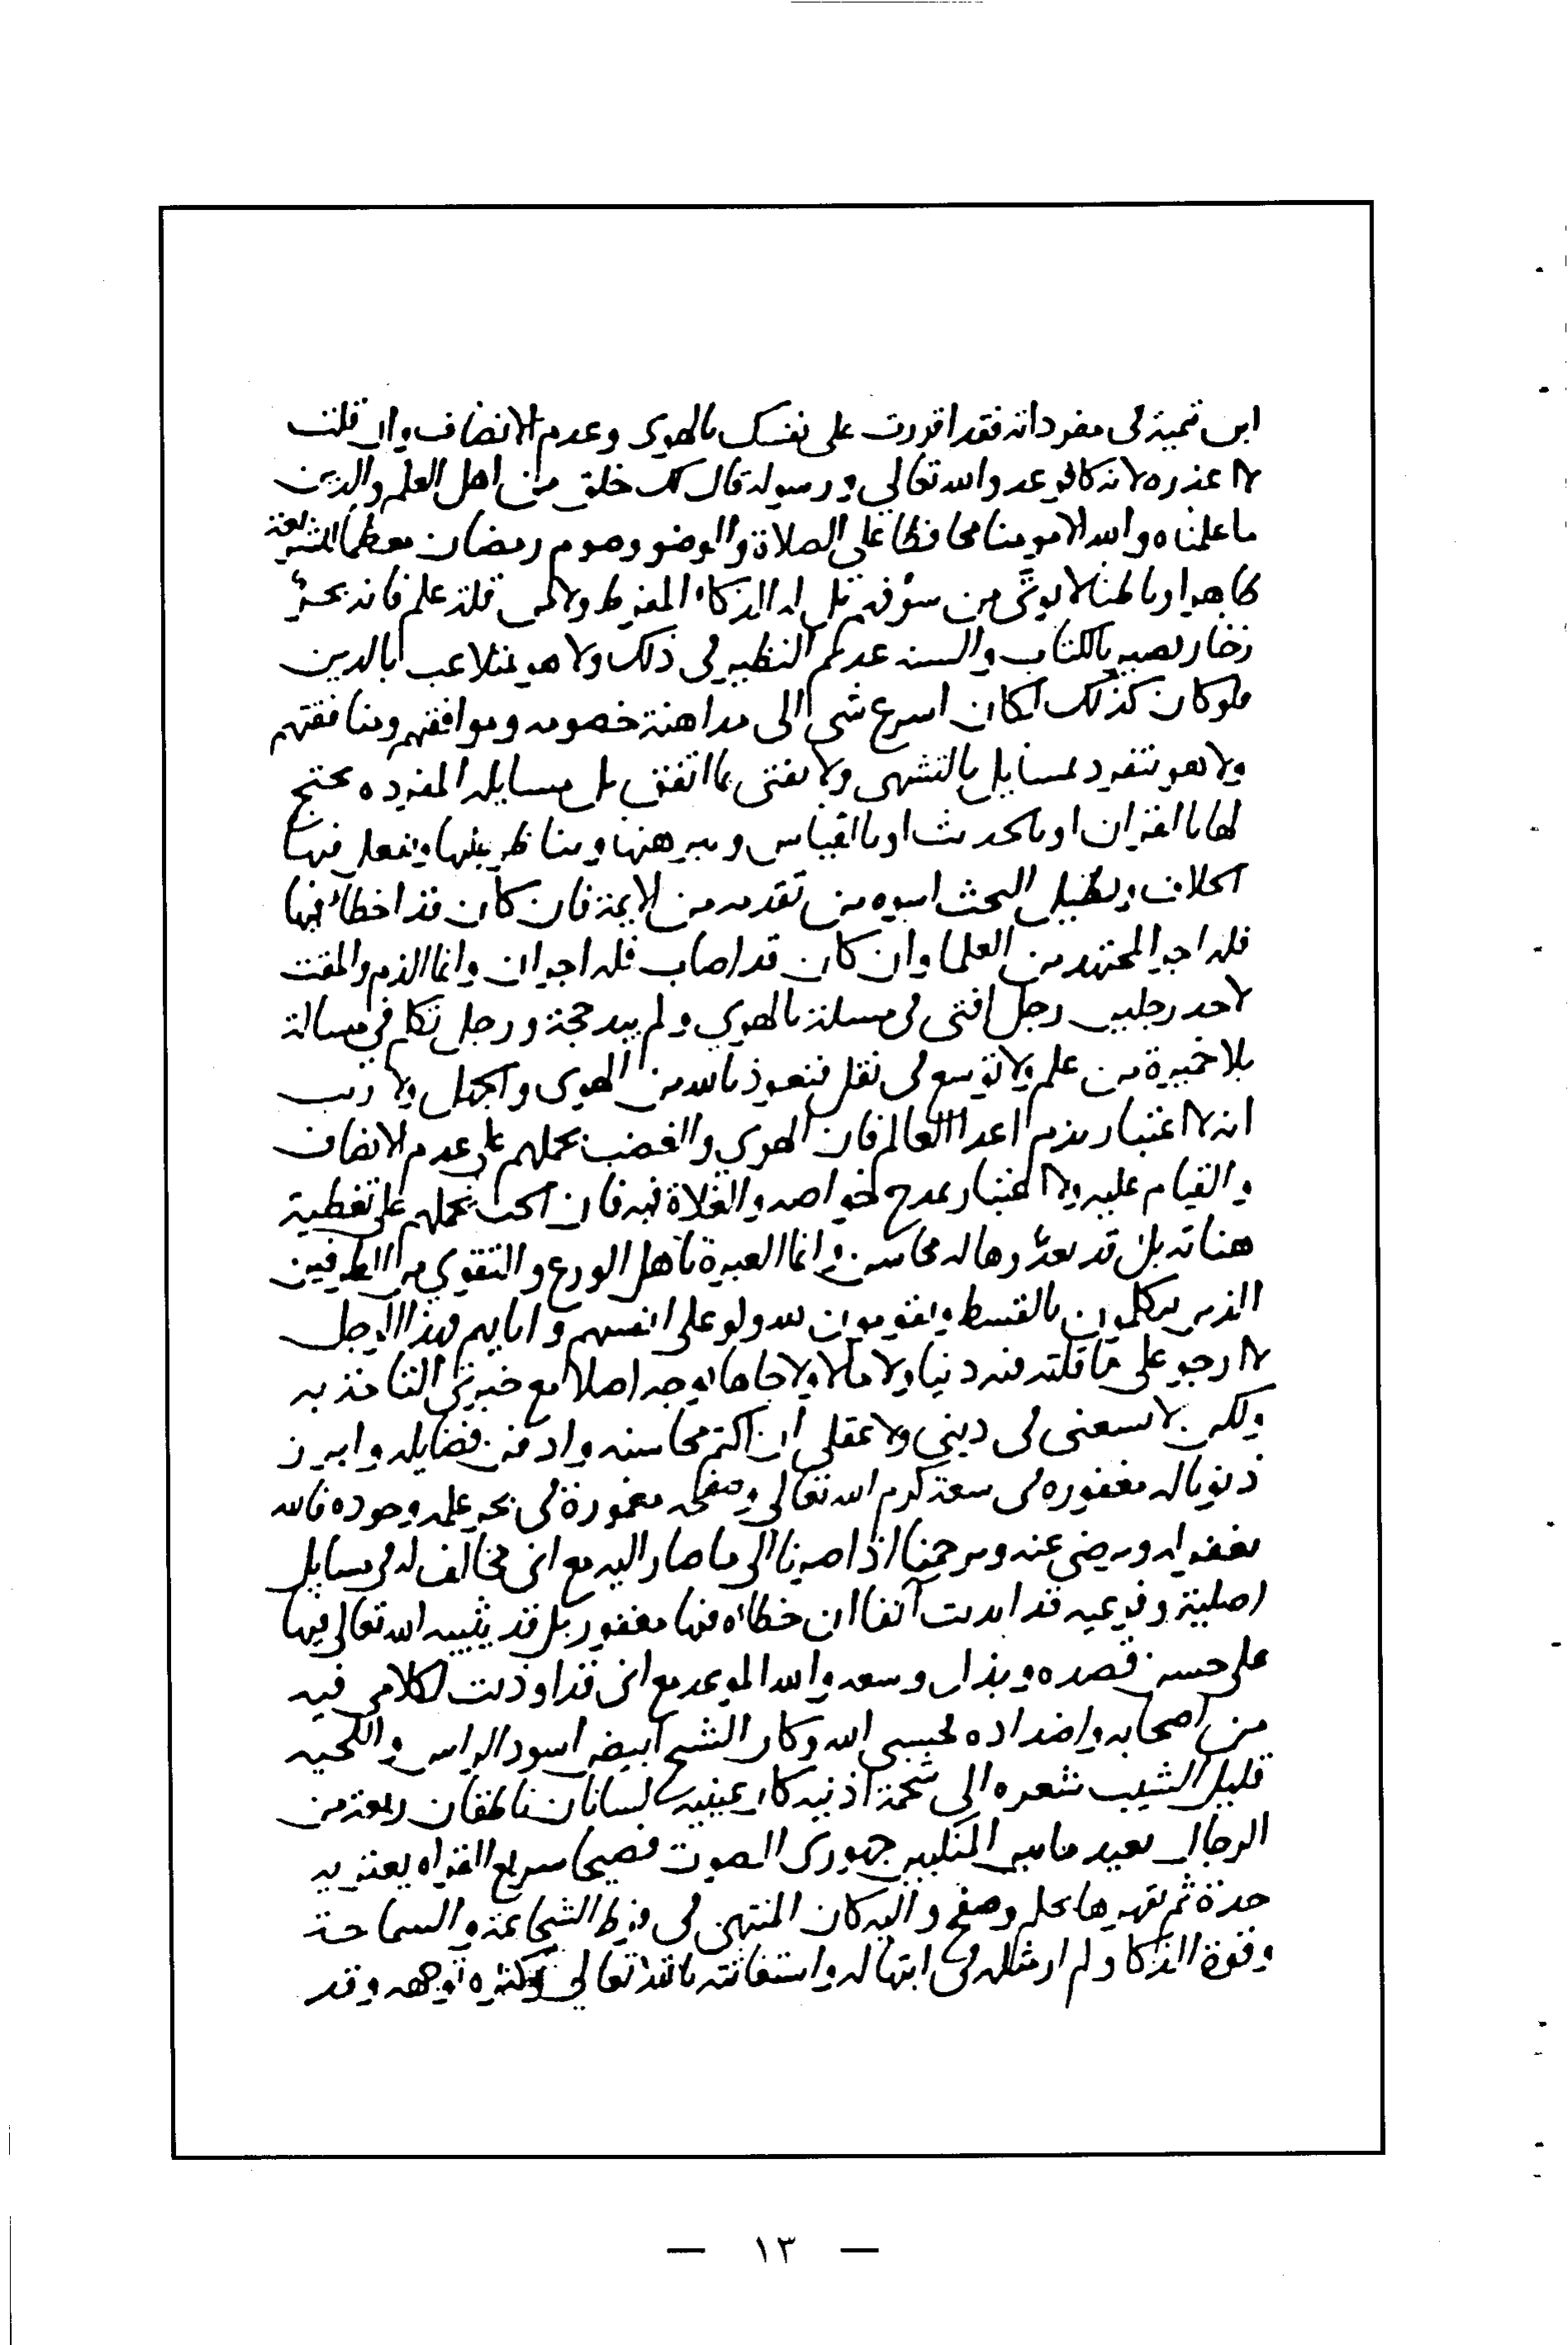 ابن تيمية في مفرداته فقد اقررت على نفسك بالهوى وعدم الانصاف وان قلت
لا اعذره لانه كافر عدو الله تعالى ورسوله قال لك خلق من اهل العلم والدين
ما علمناه والله الا مومنا محافظا على الصلاة والوضو وصوم رمضان معظما للشريعة
ظاهرا وباطنا لا يوتى من سوء فهم بل له الذكاء المفرط ولا من قلة علم فانه بحرٌ
زخار بصير بالكتاب والسنه عديم النظير في ذلك ولا هو بمتلاعب بالدين
فلو كان كذلك لكان اسرع شي الى مداهنة خصومه وموافقتهم ومنافقتهم
ولا هو يتفرد بمسايل بالتشهي ولا يفتي بما اتفق بل مسايله المفرده يحتج
لها بالقران او بالحديث او بالقياس ويبرهنها ويناظر عليها وينقل فيها
الخلاف ويطيل البحث اسوه من تقدمه من الايمة فان كان قد اخطأ فيها
فله اجر المجتهد من العلما وان كان قد اصاب فله اجران وانما الذم والمقت
لاحد رجلين رجل افتى في مسلة بالهوي ولم يبد حجة ورجل تكلم في مسالة
بلا خميرة من علم ولا توسع في نقل فنعوذ بالله من الهوى والجهل ولا ريب
انه لا اعتبار بذم اعدا العالم فان الهوي والغضب يحملهم على عدم الانصاف
والقيام عليه ولا اعتبار بمدح خواصه والغلاة فيه فان الحب يحملهم على تغطية
هناته بل قد يعدّوها له محاسن وانما العبرة باهل الورع والتقوي من الطرفين
الذين يتكلمون بالقسط ويقومون لله ولو على انفسهم وابايهم فهذا الرجل
لا ارجو على ما قلته فيه دنيا ولا مالا ولا جاها بوجه اصلا مع خبرتي التامة به
ولكن لا يسعني في ديني ولا عقلي ان اكتم محاسنه وادفن فضايله وابرز
ذنوبا له مغفوره في سعة كرم الله تعالى وصفحه مغمورة في بحر علمه وجوده فالله
يغفر له ويرضى عنه ويرحمنا اذا صرنا الى ما صار اليه مع اني مخالف له في مسايل
اصلية وفرعيه قد ابديت آنفا ان خطأه فيها مغفور بل قد يثيبه الله تعالى فيها
على حسن قصده وبذل وسعه والله الموعد مع اني قد اوذيت لكلامي فيه
من اصحابه واضداده فحسبي الله وكان الشيخ ابيض اسود الراس واللحيه
قليل الشيب شعره الى شحمة اذنيه كان عينيه لسانان ناطقان ربعة من
الرجال بعيد ما بين المنكبين جهوري الصوت فصيحا سريع القراه يعتريه
حدة ثم يقهرها بحلم وصفح واليه كان المنتهى في فرط الشجاعة والسماحة
وقوة الذكا ولم ار مثله في ابتهاله واستغاثته بالله تعالى وكثره توجهه وقد
— ١٣ —